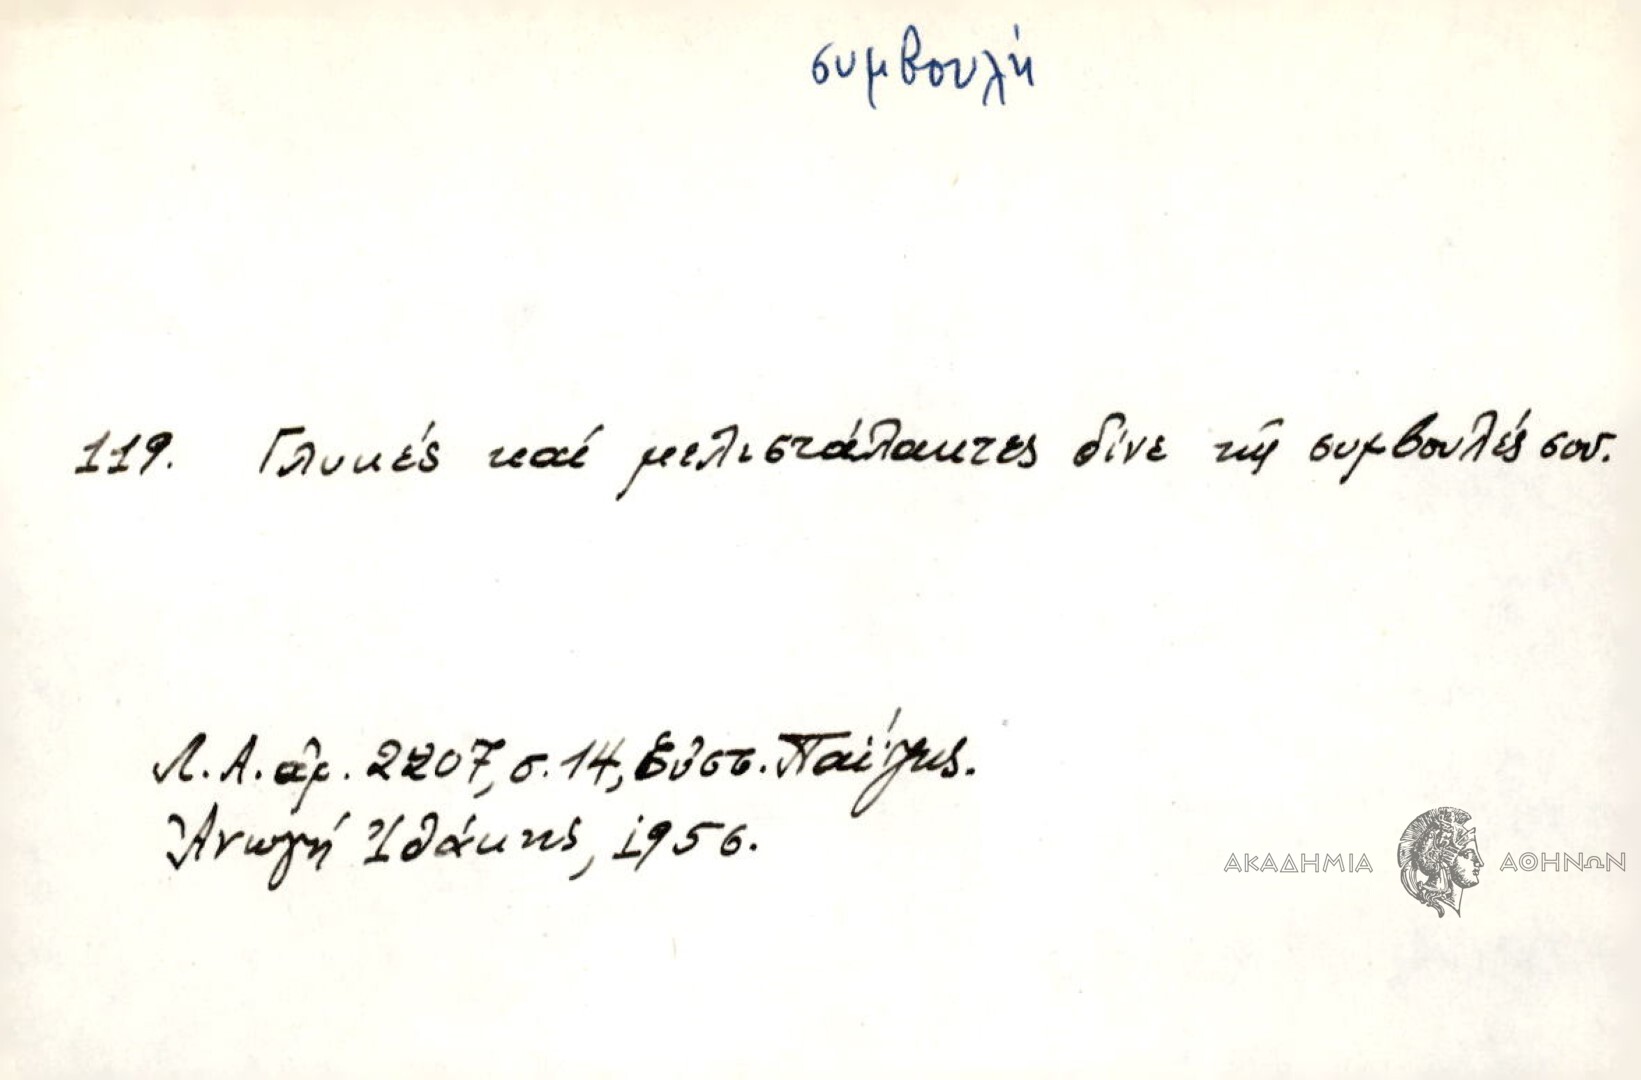 συμβουλή
119. Γλυκές καί μελιστάλακτες δίνε τίς συμβουλές σου.
Λ.Α. ἀρ. 2207, σ. 14, Εὐστ. Παΐζης.
Ἀνωγή Ἰθάκης, 1956.
ΑΚΑΔΗΜΙΑ ΑΘΗΝΩΝ